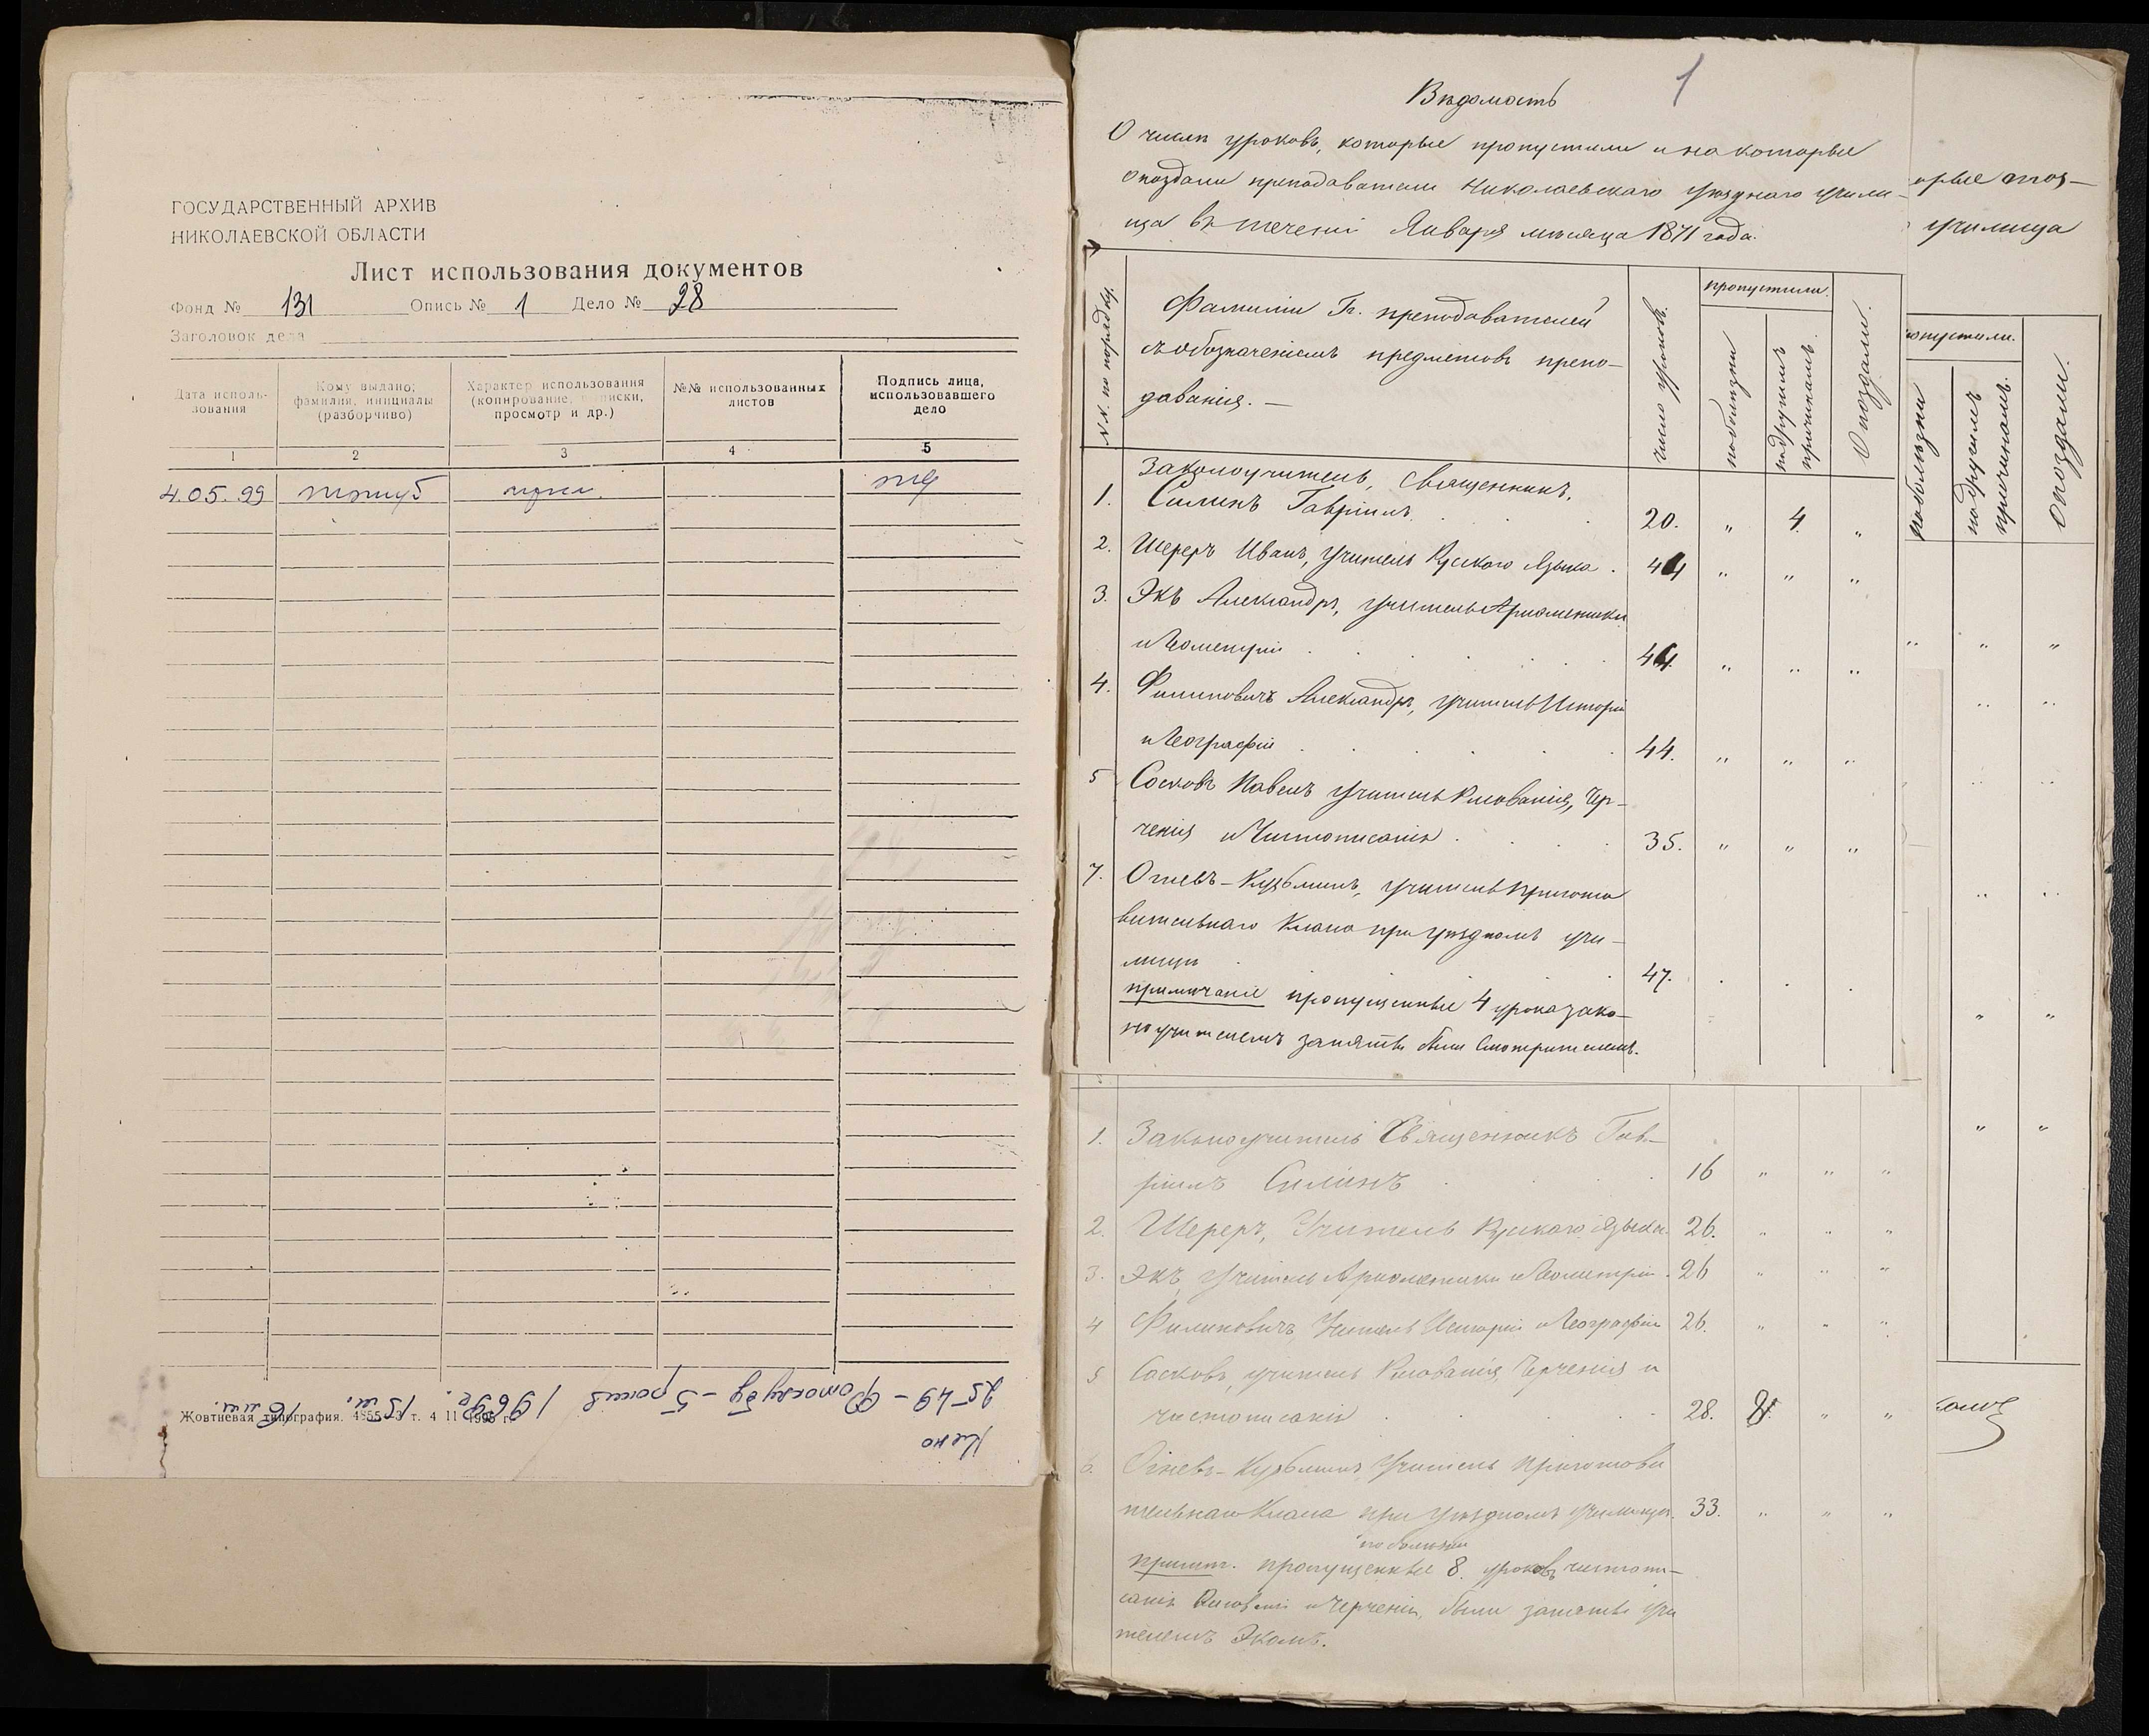 ГОСУДАРСТВЕННЫЙ АРХИВ
НИКОЛАЕВСКОЙ ОБЛАСТИ
Лист использования документов
Фонд № 131 Опись № 1 Дело № 28
Заголовок дела
Дата исполь-
зования
Кому выдано;
фамилия, инициалы
(разборчиво)
Характер использования
(копирование, выписки,
просмотр и др.)
№№ использованных
листов
Подпись лица,
использовавшего
дело
1 2 3 4 5
4.05.99
Жовтневая типография. 4855—3 т. 4 11
25-49 - 5 1969г. 15
Кино
1
Вѣдомость
О числѣ уроковъ, которые пропустили и на которые
опоздали преподаватели Николаевскаго Уѣзднаго Учили-
ща въ теченіи Января мѣсяца 1871 года.
N.N. по порядку.
Фамиліи Гг. преподавателей
съ обозначеніемъ предметовъ препо-
даванія. —
число уроковъ.
пропустили.
по болѣзни
по другимъ
причинамъ.
Опоздали.
Законоучитель, Священникъ,
1. Силинъ Гавріилъ. 20. „ 4. „
2. Шереръ Иванъ, Учитель Русскаго Языка. 44 „ „ „
3. Экъ Александръ, Учитель Ариѳметики
и Геометріи 44 „ „ „
4. Филиповичъ Александръ, Учитель Исторіи
и Географіи 44. „ „ „
5 Сосновъ Павелъ Учитель Рисованія, Чер-
ченія и Чистописанія. 35. „ „ „
7. Огневъ-Кузьминъ, Учитель Пригото
вительнаго Класса при Уѣздномъ учи-
лищѣ 47.
Примѣчаніе пропущенные 4 урока зако-
ноучителемъ заняты были Смотрителемъ.
1. Законоучитель Священникъ Гав-
ріилъ Силинъ 16 „ „ „
2. Шереръ, Учитель Русскаго языка. 26. „ „ „
3. Экъ, Учитель Ариѳметики и Геометріи. 26 „ „ „
4 Филиповичъ, Учитель Исторіи и Географіи 26. „ „ „
5 Сосновъ, учитель Рисованія, Черченія и
чистописанія 28. 8. „ „
6. Огневъ-Кузьминъ, Учитель Приготови
тельнаго Класса при Уѣздномъ Училищѣ. 33. „ „ „
по болѣзни
Примѣч. пропущенные 8. уроковъ чистопи-
санія Рисованія и Черченія, были заняты учи
телемъ Экомъ.
орые опоз-
училища
пропустили.
по болѣзни
по другимъ
причинамъ.
Опоздали.